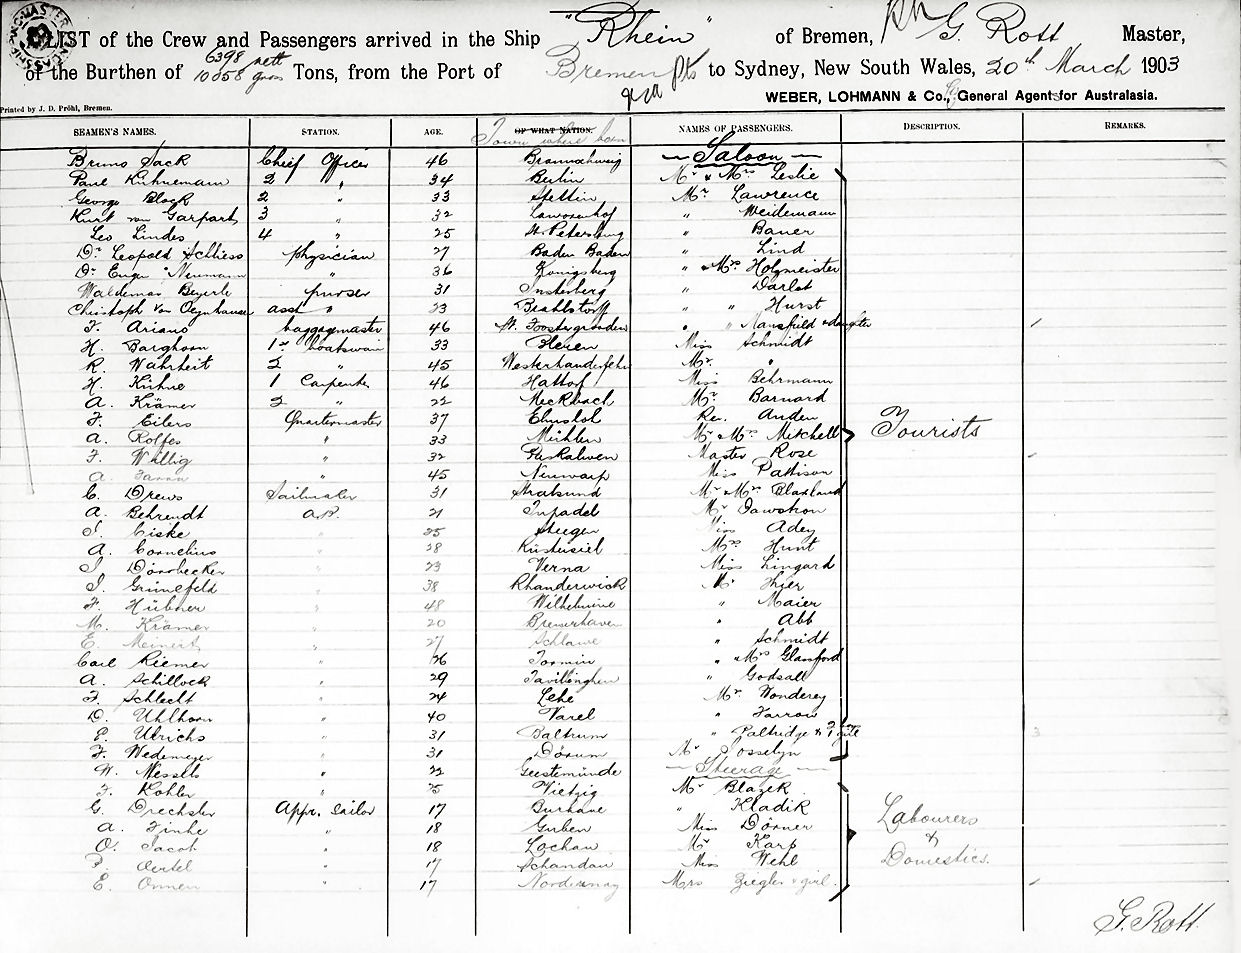 A LIST of the Crew and Passengers arrived in the Ship "Rhein" of Bremen, G. Rott Master,
of the Burthen of 6398 nett 10058 gross Tons, from the Port of Bremen pts to Sydney, New South Wales, 20th March 1903
WEBER, LOHMANN & Co., General Agents for Australasia.
Printed by J. D. Pröhl, Bremen.
SEAMEN'S NAMES. STATION. AGE. OF WHAT NATION. NAMES OF PASSENGERS. DESCRIPTION. REMARKS.
Town where born
Bruno Sack Chief Officer 46 Braunschweig Saloon
Paul Kuhnemann 2 " 34 Berlin Mr & Mrs Leslie
George Block 2 " 33 Stettin Mr Lawrence
Kurt von Garpart 3 " 32 " Weidemann
Leo Lindes 4 " 25 St. Petersburg " Bauer
Dr Leopold Schliess physician 27 Baden Baden " Lind
Dr Eugen Neumann " 36 Königsberg " & Mrs Holzmeister
Waldemar Beyerle purser 31 Insterberg " Darlot
Christoph von Oeynhausen asst " 23 Brahlstorff " " Hurst
F. Arians baggagemaster 46 " " Mansfield & daughter
H. Barghorn 1st boatswain 33 Miss Schmidt
R. Wahrheit 2 " 45 Westerhanderfehn Mr "
H. Kühne 1 Carpenter 46 Hattorf Miss Behrmann
A. Krämer 2 " 22 Meckbach Mr Barnard
F. Eilers Quartermaster 37 Elmsloh Rev. Anden
A. Rolfes " 33 Mühlen Mr & Mrs Mitchell Tourists
F. Wallig " 32 Master Rose
A. " 45 Neuwarp Miss Pattison
C. Drews Sailmaker 31 Stralsund Mr & Mrs Blaxland
A. Behrendt A.B. 21 Mr
Ciske " 25 Steegen Miss Adey
A. Cornelius " 28 Rüstersiel Mrs Hunt
Dörrbecker " 23 Verna Miss Lingard
Grünefeld " 38 Rhanderwick Mr
F. Hübner " 48 Wilhelmine " Maier
M. Krämer " 20 Bremerhaven " Abb
E. Meinert " 27 Schlawe " Schmidt
Carl Riemer " 26 " & Mrs Glansford
A. Schillock " 29 " Godsall
F. Schlecht " 24 Lehe Mr Wonderey
D. Uhlhorn " 40 Varel " Farrow
E. Ulrichs " 31 Baltrum " Paltridge & 2 boys 1 girl
F. Wedemeyer " 31 Dörum Mr Josselyn
W. Wessels " 22 Geestemünde Steerage
F. Kohler " 25 Vietzig Mr Blazek
G. Drechsler Appr. Sailor 17 Burhave " Kladik Labourers
A. Finke " 18 Guben Miss Dörner &
O. Jacob " 18 Lochau Mr Karp
P. Oertel " 17 Schandau Miss Wehl Domestics.
E. Onnen " 17 Norderney Mrs Ziegler & girl.
G. Rott.